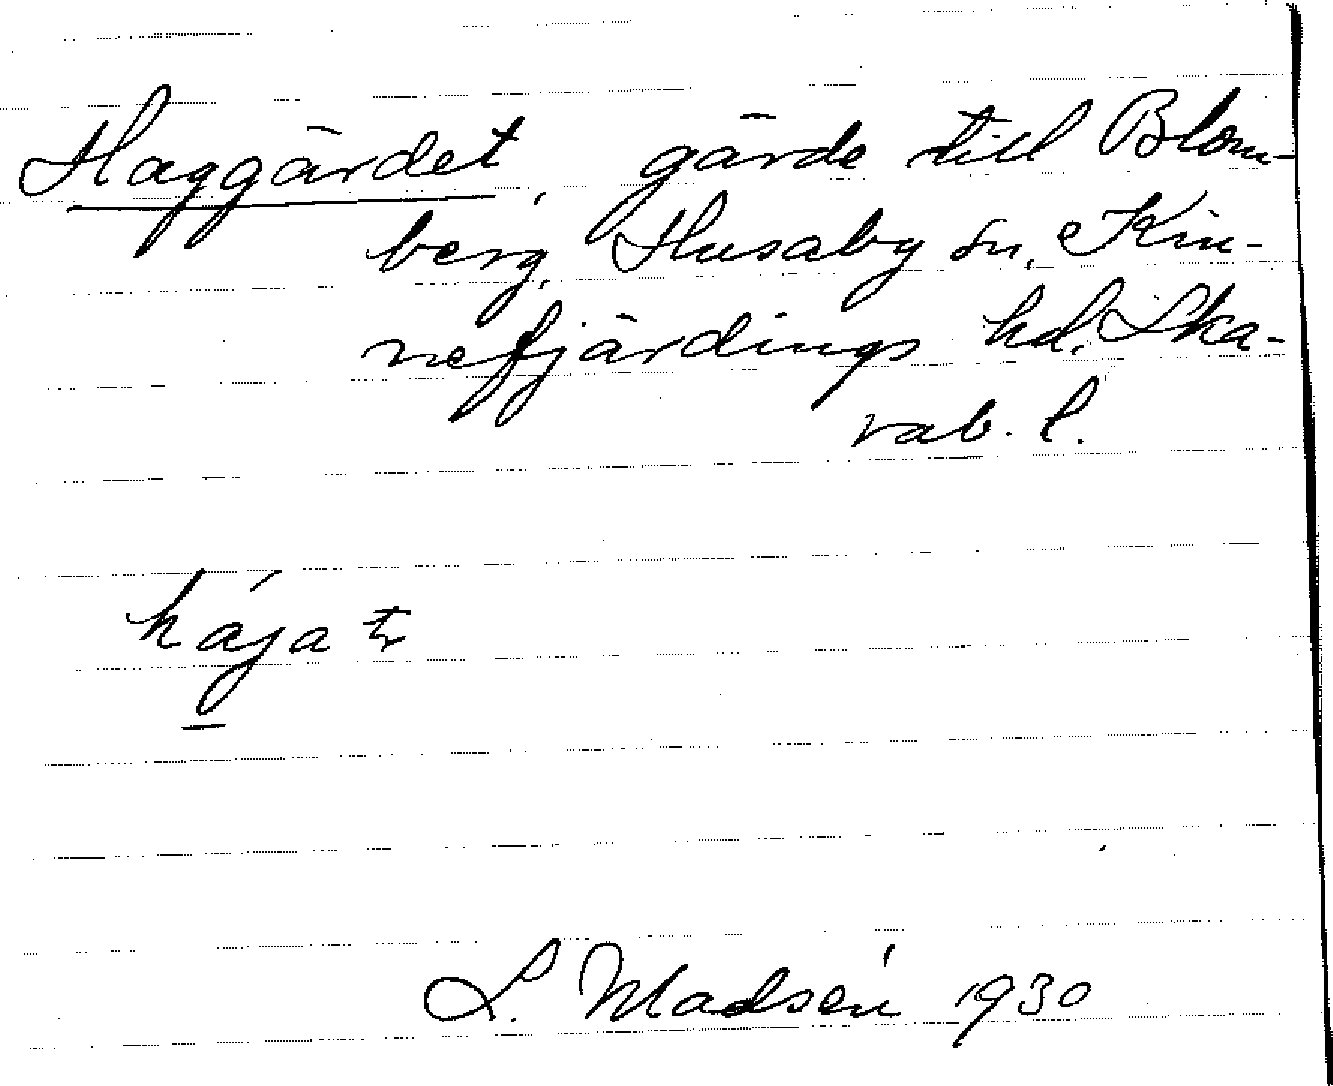 Haggärdet, gärde till Blom-
berg, Husaby sn, Kin-
nefjärdings hd. Ska-
rab. l.
L. Madsén 1930